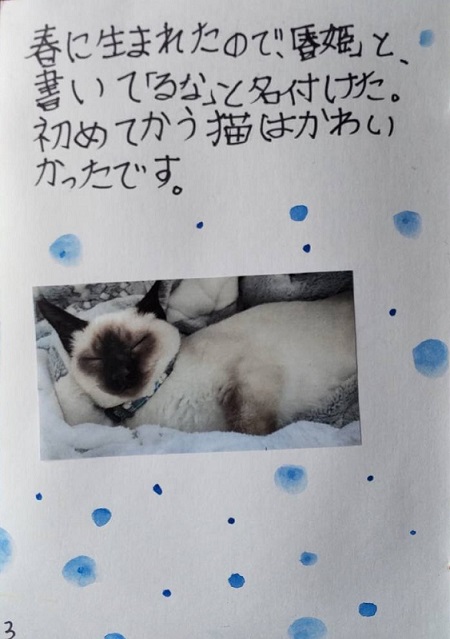 春に生まれたので、「春姫」と、
書いて「るな」と名付けた。
初めてかう猫はかわい
かったです。
3